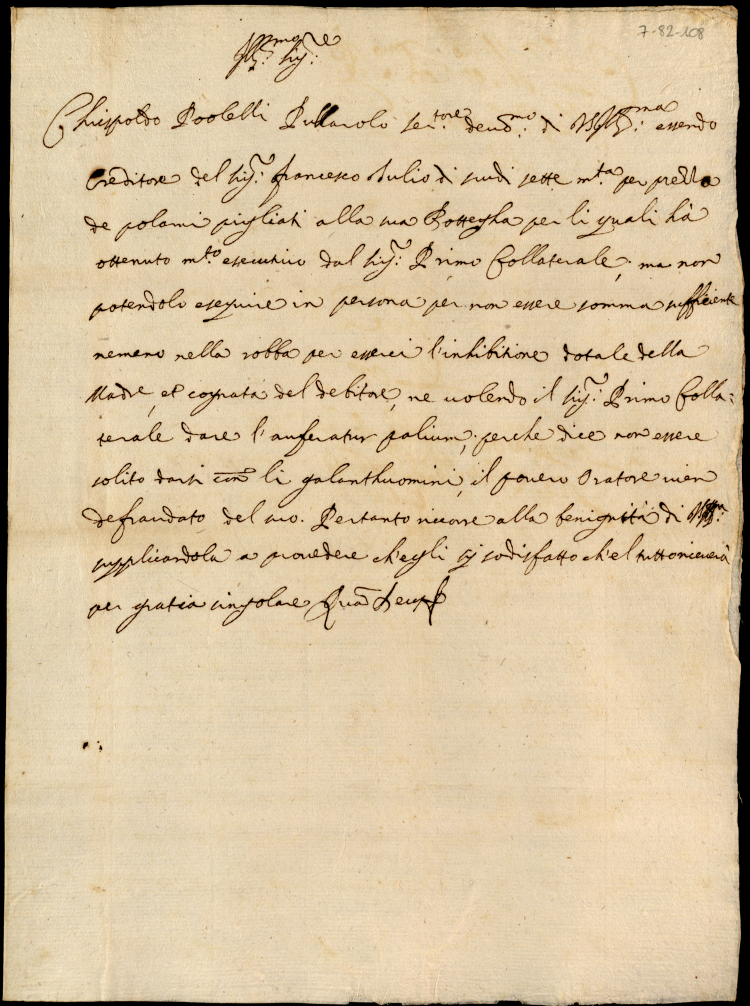 7-82-108
Ill.mo Sig.re
Chrispoldo Paolelli Pullarolo ser.tore deuo.mo di VSIll.ma essendo
Creditore del Sig.r francesco Iulio di scudi sette m.ta per prezzo
de polami pigliati alla sua Bottegha per li quali hà
ottenuto m.to esecutiuo dal Sig.r Primo Collaterale, ma non
potendolo eseguire in persona per non essere somma sufficiente
nemeno nella robba per esserci l'inhibitione dotale della
Madre, et cognata del debitore, ne uolendo il Sig.r Primo Colla=
terale dare l'auferatur palium, perche dice non essere
solito darsi con li galanthuomini, il pouero Oratore uien
defraudato del suo. Pertanto ricorre alla benignità di
supplicandola a prouedere ch'egli sij sodisfatto ch'el tutto riceuerà
per gratia singolare Quam Deus